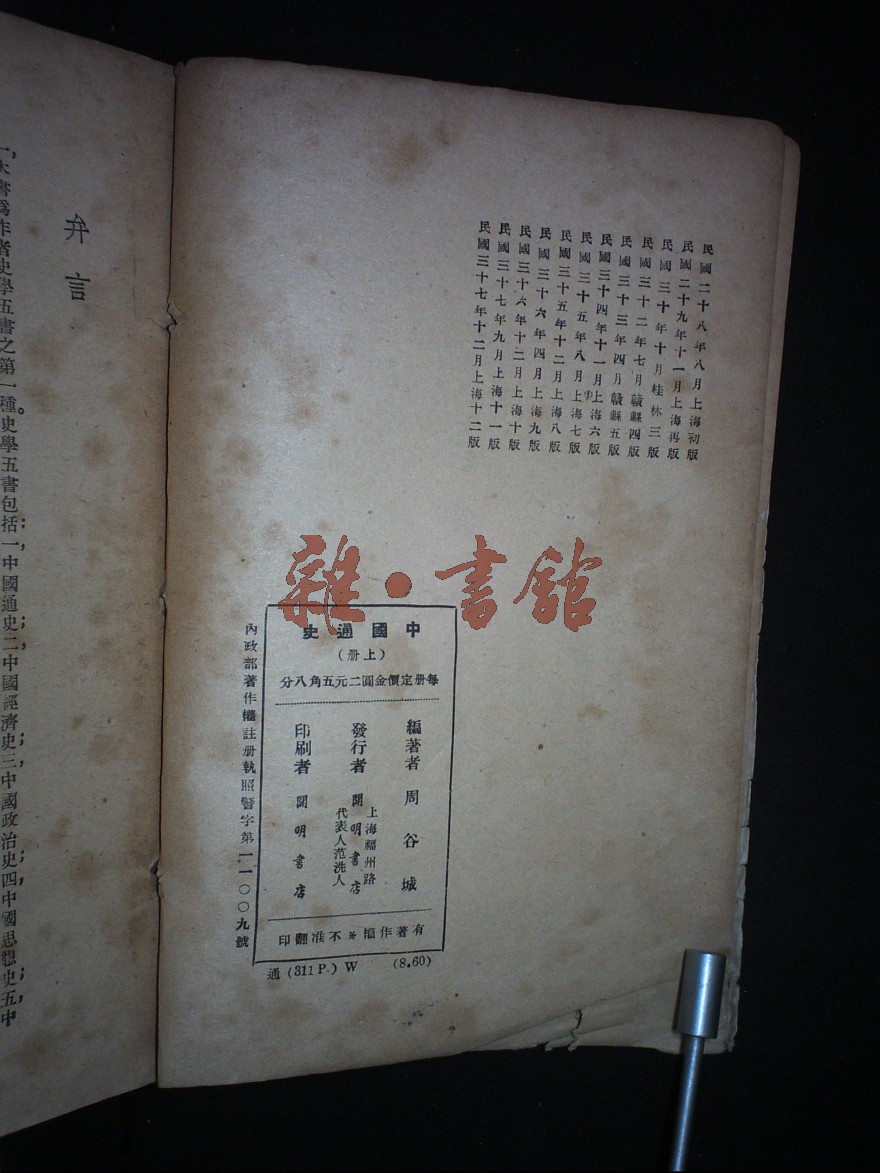 民國二十八年八月上海初版
民國二十九年十一月上海再版
民國三十年十月桂林三版
民國三十二年七月贛縣四版
民國三十三年四月贛縣五版
民國三十四年十一月上海六版
民國三十五年八月上海七版
民國三十五年十二月上海八版
民國三十六年四月上海九版
民國三十六年十二月上海十版
民國三十七年九月上海十一版
民國三十七年十二月上海十二版
雜·書館
中國通史
(上册)
每册定價金圓二元五角八分
編著者 周谷城
發行者 開明書店
上海福州路
代表人范洗人
印刷者 開明書店
有著作權*不准翻印
內政部著作權註册執照警字第一一〇〇九號
通 (311 P.) W (8.60)
弁言
一,本書爲作者史學五書之第一種。史學五書包括:一,中國通史;二,中國經濟史;三,中國政治史;四,中國思想史;五,中